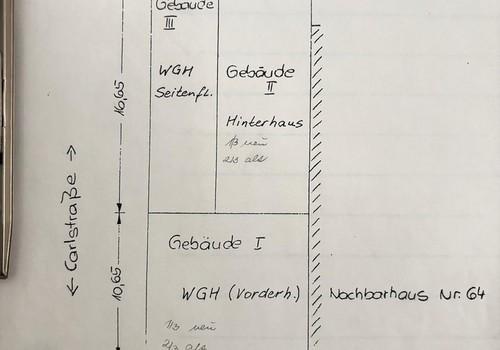 Gebäude
III
WGH
Seitenfl.
Gebäude
II
Hinterhaus
1/3 neu
2/3 als
16,65
← Carlstraße →
10,65
Gebäude I
WGH (Vorderh.)
1/3 neu
2/3 als
Nachbarhaus Nr. 64